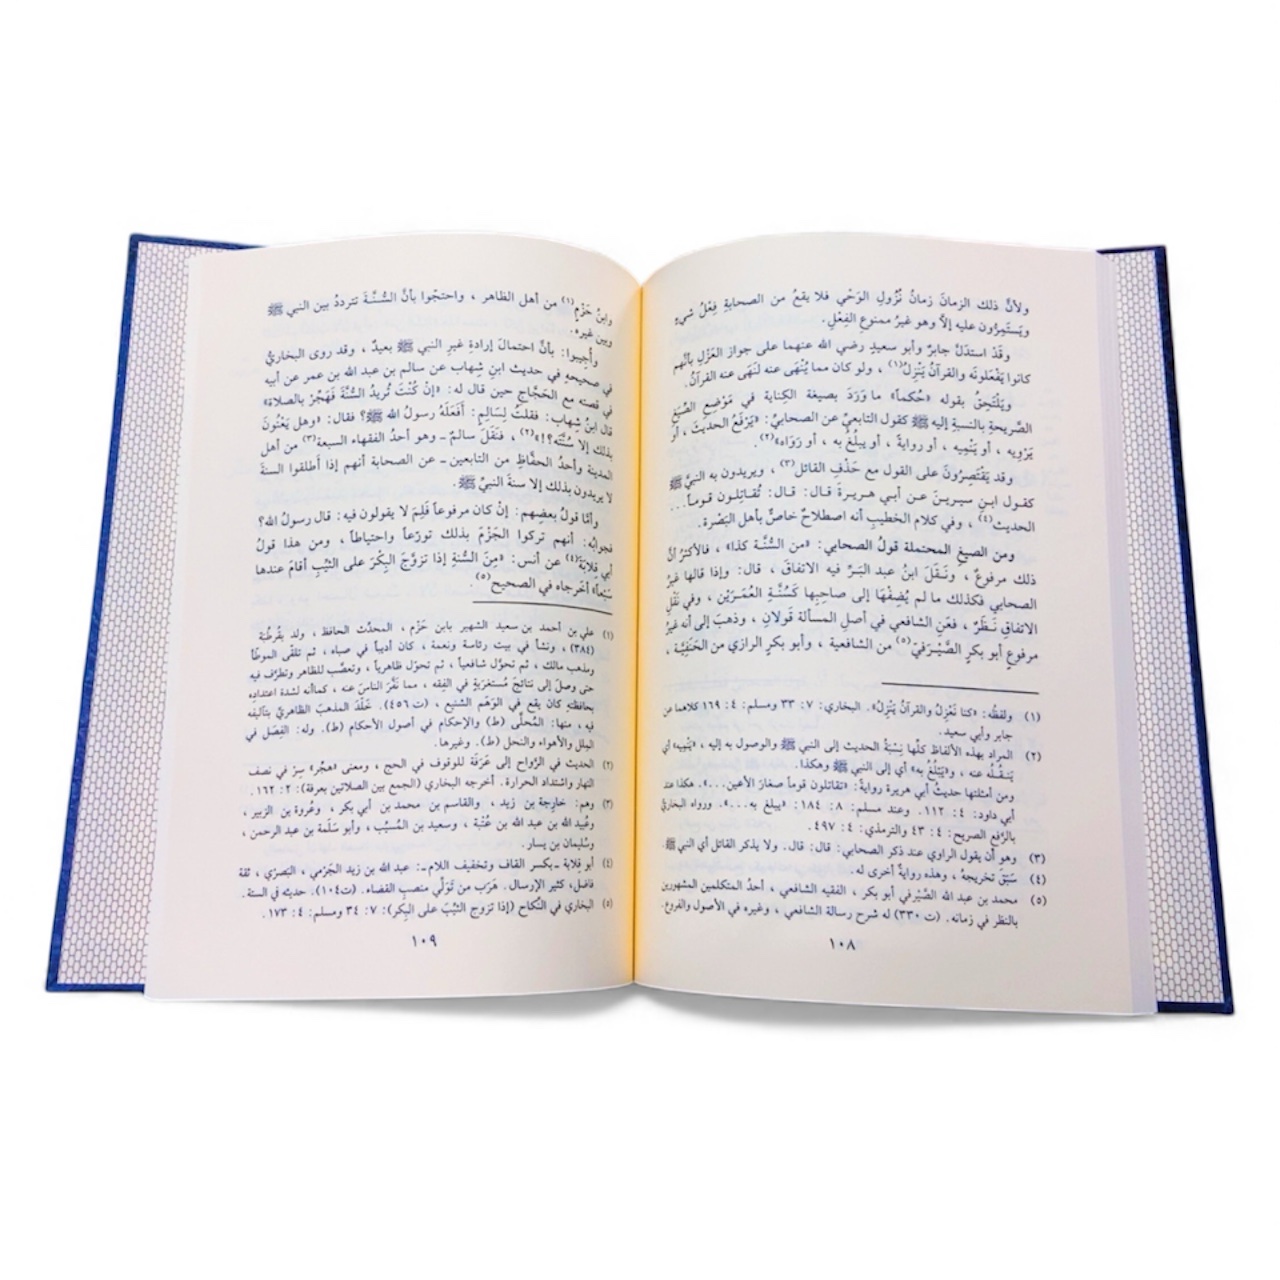 ولأنَّ ذلك الزمانَ زمانُ نُزُولِ الوَحْيِ فلا يقعُ من الصحابةِ فِعْلُ شيءٍ
ويَستمِرُّون عليه إلاَّ وهو غيرُ ممنوعِ الفِعْلِ.
وقَدْ استدَلَّ جابرٌ وأبو سعيدٍ رضي الله عنهما على جواز العَزْلِ بأنَّهم
كانوا يَفْعَلونَه والقرآنُ يَنْزِلُ(١) ، ولو كان مما يُنْهَى عنه لنَهَى عنه القرآنُ.
ويَلْتَحِقُ بقوله «حُكماً» ما وَرَدَ بصيغة الكِناية في مَوْضِعِ الصِّيَغِ
الصَّريحةِ بالنسبةِ إليه ﷺ كقول التابعيِّ عن الصحابيِّ: «يَرْفَعُ الحديثَ ، أو
يَرْوِيه ، أو يَنْمِيه ، أو روايةً ، أو يبلُغ به ، أو رَوَاه»(٢).
وقد يَقْتَصِرُونَ على القول مع حَذْفِ القائل(٣) ، ويريدون به النبيَّ ﷺ
كقول ابنِ سيرينَ عن أبي هريرة قال: قال: تُقاتِلون قوماً...
الحديث(٤) ، وفي كلام الخطيبِ أنه اصطلاحٌ خاصٌّ بأهل البَصْرة.
ومن الصيغِ المحتملة قولُ الصحابي: «من السُّنَّة كذا» ، فالأكثرُ أنَّ
ذلك مرفوعٌ ، ونَقَلَ ابنُ عبد البَرِّ فيه الاتفاقَ ، قال: وإذا قالها غيرُ
الصحابي فكذلك ما لم يُضِفْها إلى صاحِبِها كَسُنَّةِ العُمَرَيْنِ ، وفي نَقْلِ
الاتفاقِ نَظَرٌ ، فعَنِ الشافعي في أصلِ المسألة قَولان ، وذهبَ إلى أنه غيرُ
مرفوعٍ أبو بكرٍ الصَّيْرَفيُّ(٥) من الشافعية ، وأبو بكرٍ الرازي من الحَنَفِيَّة ،
(١) ولفظُه: «كنا نَعْزِلُ والقرآنُ يَنْزِلُ». البخاري: ٧: ٣٣ ومسلم: ٤: ١٦٩ كلاهما عن
جابر وأبي سعيد.
(٢) المراد بهذه الألفاظ كلِّها نِسْبَةُ الحديث إلى النبي ﷺ والوصول به إليه ، «يَنْمِيه» أي
يَنقُلُه عنه ، و«يَبْلُغُ به» أي إلى النبي ﷺ وهكذا.
ومن أمثلتها حديثُ أبي هريرة روايةً: «تقاتلون قوماً صغارَ الأعين...». هكذا عند
أبي داود: ٤: ١١٢. وعند مسلم: ٨: ١٨٤: «يبلغ به...». ورواه البخاريُّ
بالرَّفع الصريح: ٤: ٤٣ والترمذي: ٤: ٤٩٧.
(٣) وهو أن يقول الراوي عند ذكر الصحابي: قال: قال. ولا يذكر القائل أي النبي ﷺ.
(٤) سَبَقَ تخريجهُ ، وهذه روايةٌ أخرى له.
(٥) محمد بن عبد الله الصَّيْرفي أبو بكر ، الفقيه الشافعي ، أحدُ المتكلمين المشهورين
بالنظر في زمانه. (ت ٣٣٠) له شرح رسالة الشافعي ، وغيره في الأصول والفروع.
١٠٨
وابنُ حَزْمٍ(١) من أهل الظاهر ، واحتجُّوا بأنَّ السُّنَّةَ تترددُ بين النبي ﷺ
وبين غيره.
وأُجيبوا: بأنَّ احتمالَ إرادةِ غيرِ النبي ﷺ بعيدٌ ، وقد روى البخاريُّ
في صحيحهِ في حديث ابنِ شِهاب عن سالم بن عبد الله بن عمر عن أبيه
في قصته مع الحَجَّاجِ حين قال له: «إنْ كُنْتَ تُريدُ السُّنَّةَ فَهَجِّرْ بالصلاة»
قال ابنُ شهاب: فقلتُ لِسَالِمٍ: أَفَعَلَهُ رسولُ الله ﷺ؟ فقال: «وهل يَعْنُونَ
بذلك إلا سُنَّتَه؟!»(٢) ، فنَقَلَ سالمٌ ــ وهو أحدُ الفقهاء السبعة(٣) من أهل
المدينة وأحدُ الحفَّاظِ من التابعين ــ عن الصحابة أنهم إذا أَطلقوا السنةَ
لا يريدون بذلك إلا سنةَ النبيِّ ﷺ.
وأمَّا قولُ بعضِهم: إنْ كان مرفوعاً فَلِمَ لا يقولون فيه: قال رسولُ الله؟
فجوابُه: أنهم تركوا الجَزْمَ بذلك تورّعاً واحتياطاً ، ومن هذا قولُ
أبي قِلابَة(٤) عن أنس: «مِنَ السُّنةِ إذا تزوَّجَ البِكْرَ على الثيِّبِ أقامَ عندها
سَبْعاً» أخرجاه في الصحيح(٥).
(١) علي بن أحمد بن سعيد الشهير بابن حَزْم ، المحدِّث الحافظ ، ولد بقُرطُبَة
(٣٨٤) ، ونشأ في بيت رئاسة ونعمة ، كان أديباً في صباه ، ثم تلقَّى الموطأ
ومذهب مالك ، ثم تحوَّل شافعياً ، ثم تحوَّل ظاهرياً ، وتعصَّب للظاهر وتطرَّف فيه
حتى وصلَ إلى نتائجَ مُستغرَبة في الفِقه ، مما نَفَّرَ الناسَ عنه ، كماأنه لشدة اعتدادِه
بحافظتهِ كان يقع في الوَهَم الشنيع ، (ت ٤٥٦). خَلَّدَ المذهبَ الظاهريَّ بتآليفه
فيه ، منها: المُحلَّى (ط) والإحكام في أصول الأحكام (ط). وله: الفِصَل في
الملل والأهواء والنحل (ط). وغيرها.
(٢) الحديث في الرَّواح إلى عَرَفَة للوقوف في الحج ، ومعنى «هجِّر» سِرْ في نصف
النهار واشتداد الحرارة. أخرجه البخاري (الجمع بين الصلاتين بعرفة): ٢: ١٦٢.
(٣) وهم: خارِجة بن زيد ، والقاسم بن محمد بن أبي بكر ، وعُروة بن الزبير ،
وعُبيد الله بن عبد الله بن عُتْبة ، وسعيد بن المُسيَّب ، وأبو سلَمة بن عبد الرحمن ،
وسُليمان بن يسار.
(٤) أبو قِلابة ــ بكسر القاف وتخفيف اللام ــ: عبد الله بن زيد الجَرْمي ، البَصْري ، ثقة
فاضل، كثير الإرسال. هَرَب من تَوَلّي منصبِ القضاء. (ت١٠٤). حديثه في الستة.
(٥) البخاري في النِّكاح (إذا تزوج الثيِّبَ على البِكر): ٧: ٣٤ ومسلم: ٤: ١٧٣.
١٠٩